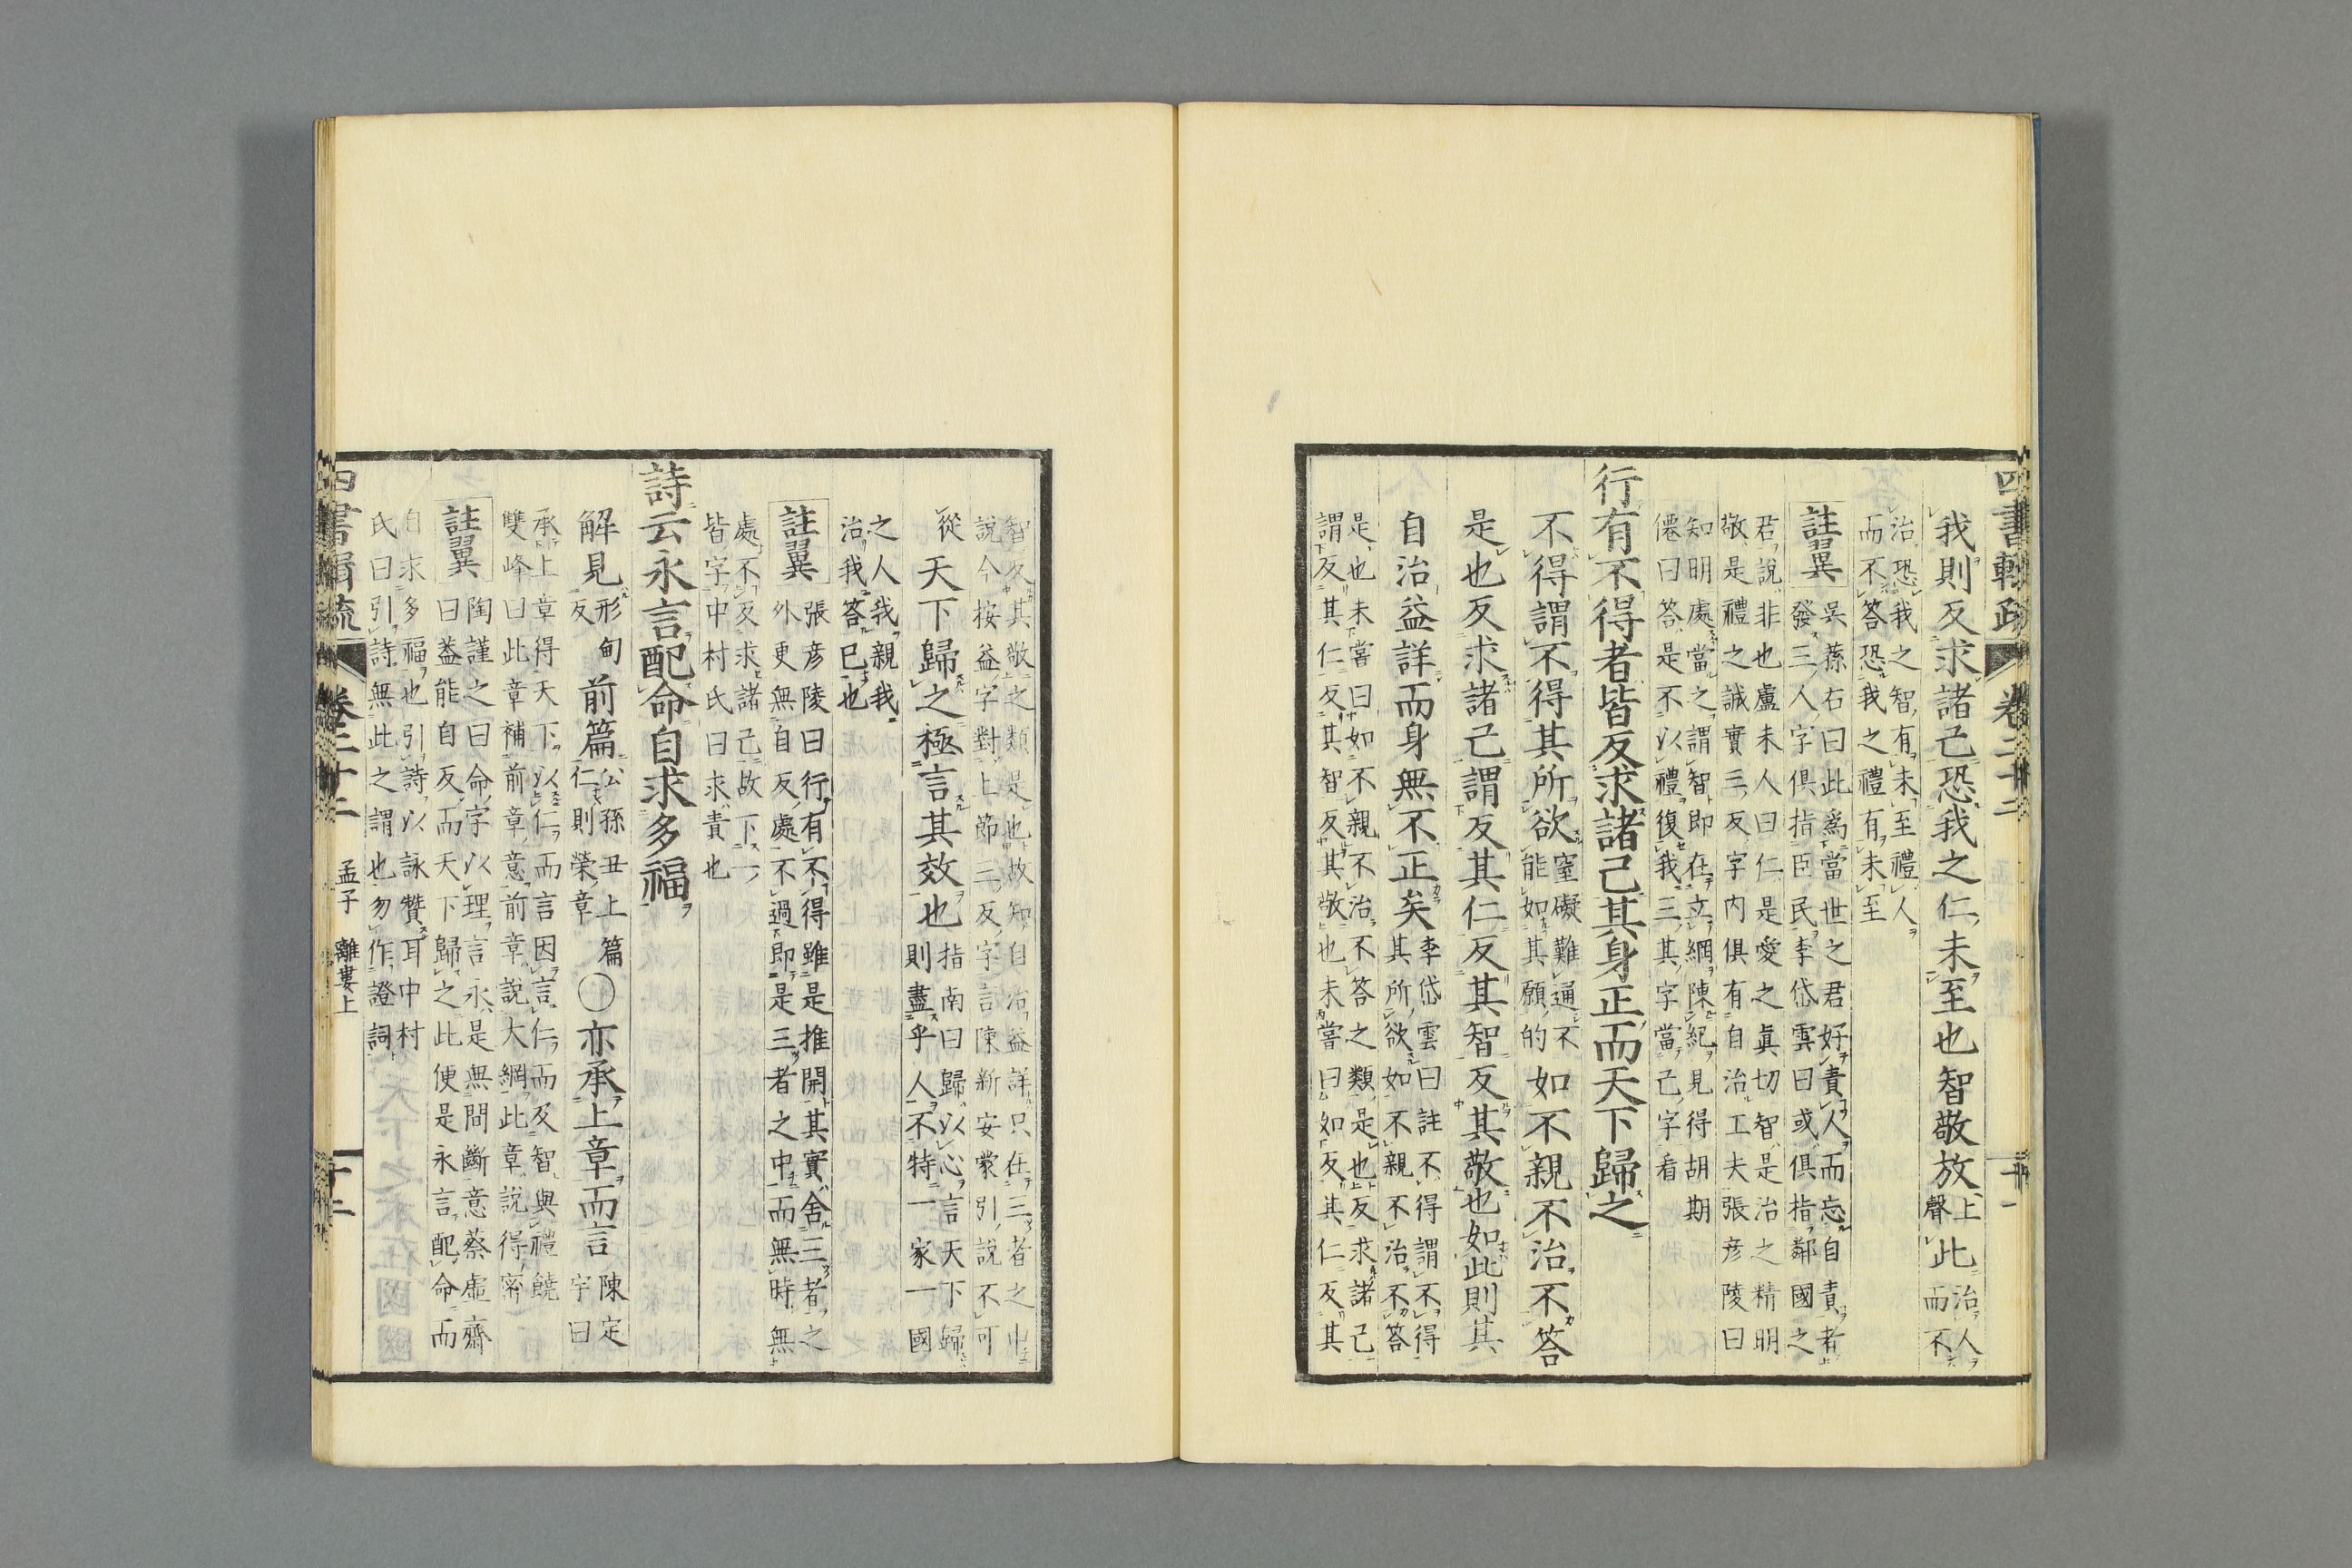 我則反求諸己恐我之仁未至也智敬放上聲此治人而不
治恐我之智有未至禮人
而不答恐我之禮有未至
註翼吳蓀右曰此爲當世之君好責人而忘自責者
發三人字俱指臣民李岱雲曰或俱指鄰國之
君說非也盧未人曰仁是愛之眞切智是治之精明
敬是禮之誠實三反字内俱有自治工夫張彦陵曰
知明處當之謂智即在立綱陳紀見得胡期
僊曰答是不以禮復我三其字當己字看
行有不得者皆反求諸己其身正而天下歸之
不得謂不得其所欲窒礙難通不能如其願的如不親不治不答
是也反求諸己謂反其仁反其智反其敬也如此則其
自治益詳而身無不正矣李岱雲曰註不得謂不得
其所欲如不親不治不答
是也未嘗曰如不親不治不答之類是也反求諸己
謂反其仁反其智反其敬也未嘗曰如反其仁反其
智反其敬之類是也故知自治益詳只在三者之中
說今按益字對上節三反字言陳新安蒙引說不可
從天下歸之極言其效也指南曰歸以心言天下歸
則盡乎人不特一家一國
之人我親我
治我答已也
註翼張彦陵曰行有不得雖是推開其實舍三者之
外更無自反處不過即是三者之中而無時無
處不反求諸己故下一
皆字中村氏曰求責也
詩云永言配命自求多福
解見形甸反前篇公孫丑上篇仁則榮章○亦承上章而言陳定宇曰
承上章得天下以仁而言因言仁而及智與禮饒
雙峰曰此章補前章意前章說大綱此章說得密
註翼陶謹之曰命字以理言永是無間斷意蔡虛齋
曰葢能自反而天下歸之此便是永言配命而
自求多福也引詩以詠贊耳中村
氏曰引詩無此之謂也勿作證詞
四書輯疏 卷二十二 孟子 離婁上 十二